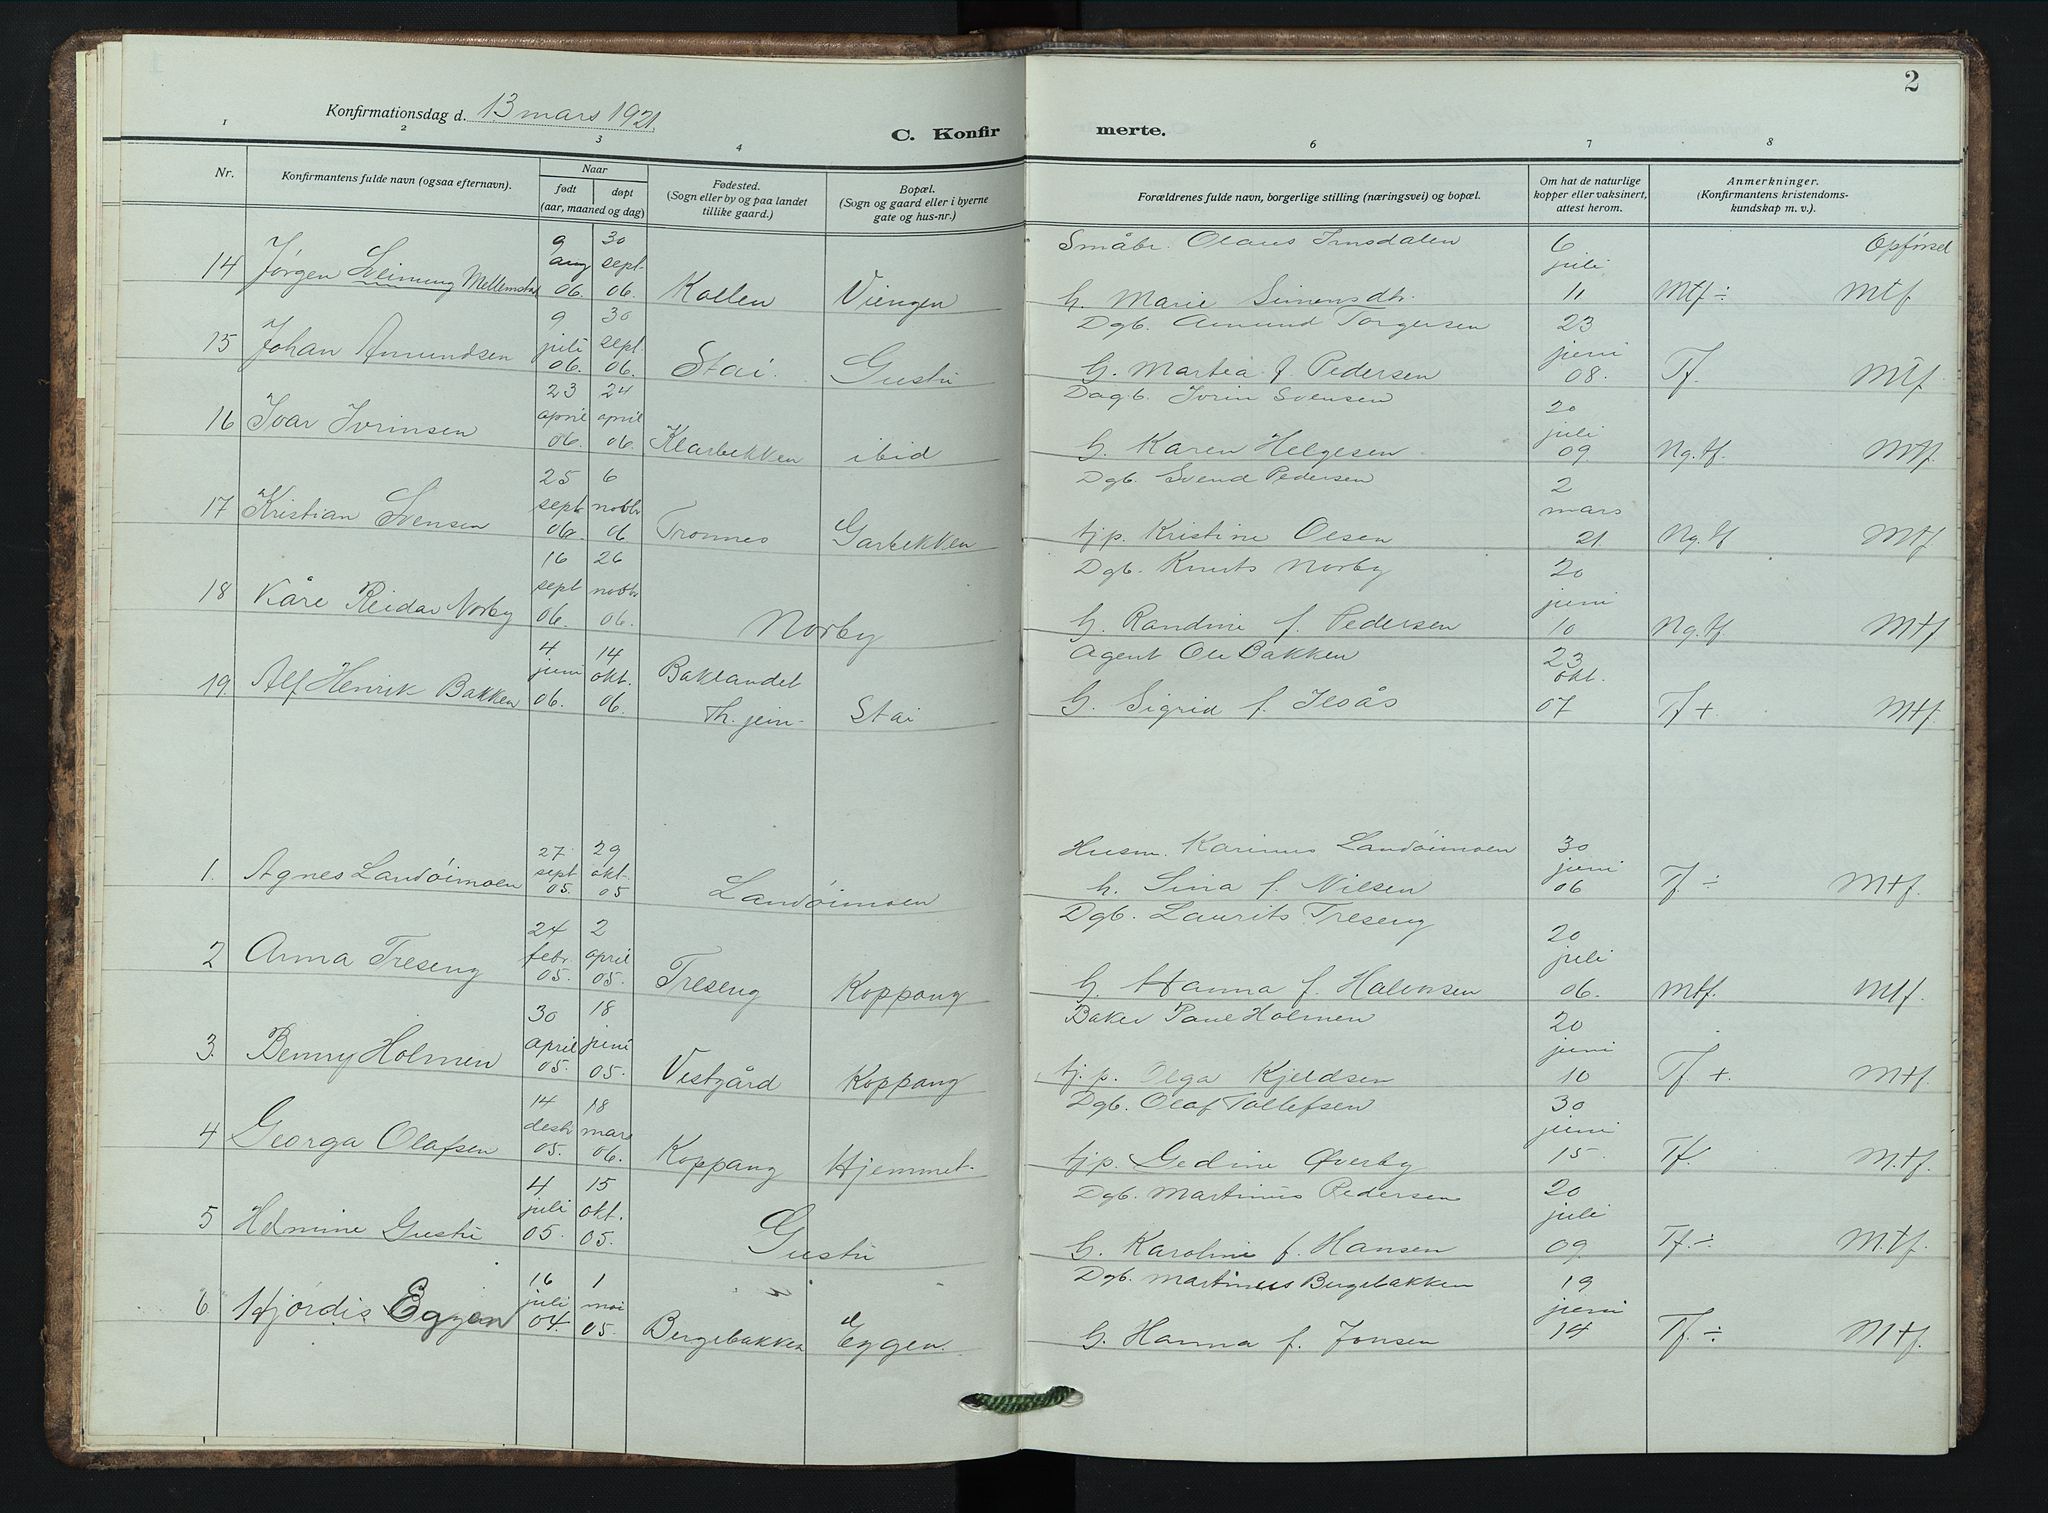 2
Konfirmationsdag d. 13 mars 1921.
C. Konfirmerte.
1 2 3 4 6 7 8
Nr. Konfirmantens fulde navn (ogsaa efternavn). Naar født døpt (aar, maaned og dag) Fødested. (Sogn eller by og paa landet tillike gaard.) Bopæl. (Sogn og gaard eller i byerne gate og hus-nr.) Forældrenes fulde navn, borgerlige stilling (næringsvei) og bopæl. Om hat de naturlige kopper eller vaksinert, attest herom. Anmerkninger. (Konfirmantens kristendoms-kundskap m. v.).
Opførsel
14 Jørgen Sveinung Mellemstad 9 aug 06. 30 sept. 06. Kollen Viengen Småbr. Olaus Imsdalen h. Marie Simensdtr. 6 juli 11 Mtf ÷ Mtf.
15 Johan Amundsen 9 juli 06. 30 sept. 06. Stai. Gustu Dgb. Amund Torgersen h. Martea f. Pedersen 23 juni 08. Tf. Mtf.
16 Ivar Ivrinsen 23 april 06. 24 april 06. Klarbekken ibid Dagb. Ivrin Svensen h. Karen Helgesen 20 juli 09. Ng. tf. Mtf.
17 Kristian Svensen 25 sept 06. 6 novbr 06 Tronnes Garbekken Dgb. Svend Pedersen tj.p. Kristine Olsen 2 mars 21. Ng. tf Mtf.
18 Kåre Reidar Norby 16 sept 06. 26 novbr 06. Norby Dgb. Knuts Norby h. Randine f. Pedersen 20 juni 10 Ng. tf. Mtf.
19. Alf Henrik Bakken 4 juni 06. 14 okt. 06. Baklandet Th.jem- Stai Agent Ole Bakken h. Sigrid f. Ilsås 23 okt. 07 Tf +. Mtf.
1. Agnes Landøimoen 27 sept 05. 29 okt. 05 Landøimoen Husm. Karinus Landøimoen h. Sina f. Nilsen 30 juni 06 Tf ÷ Mtf.
2 Anna Treseng 24 febr. 05. 2 april 05. Treseng Koppang Dgb. Laurits Treseng h. Hanna f. Halvorsen 20 juli 06. Mtf. Mtf.
3. Benny Holmen 30 april 05. 18 juni 05. Vestgård Koppang Baker Paul Holmen tj. p. Olga Kjeldsen 20 juni 10 Tf. +. Mtf.
4 Georga Olafsen 14 desbr 05. 18 mars 06. Koppang Hjemmet. Dgb. Olaf Tollefsen tj.p. Gedine Øverby 30 juni 15. Tf. M.tf.
5 Helmine Gustu 4 juli 05. 15 okt. 05. Gustu Dgb. Martinus Pedersen h. Karoline f. Hansen 20 juli 09. Tf. ÷ M.tf.
6. Hjørdis Eggen 16 juli 04. 1 mai 05. Bergebakken Eggen. Dgb. Martinus Bergebakken h. Hanna f. Jonsen 19 juni 14 Tf. ÷ Mtf.